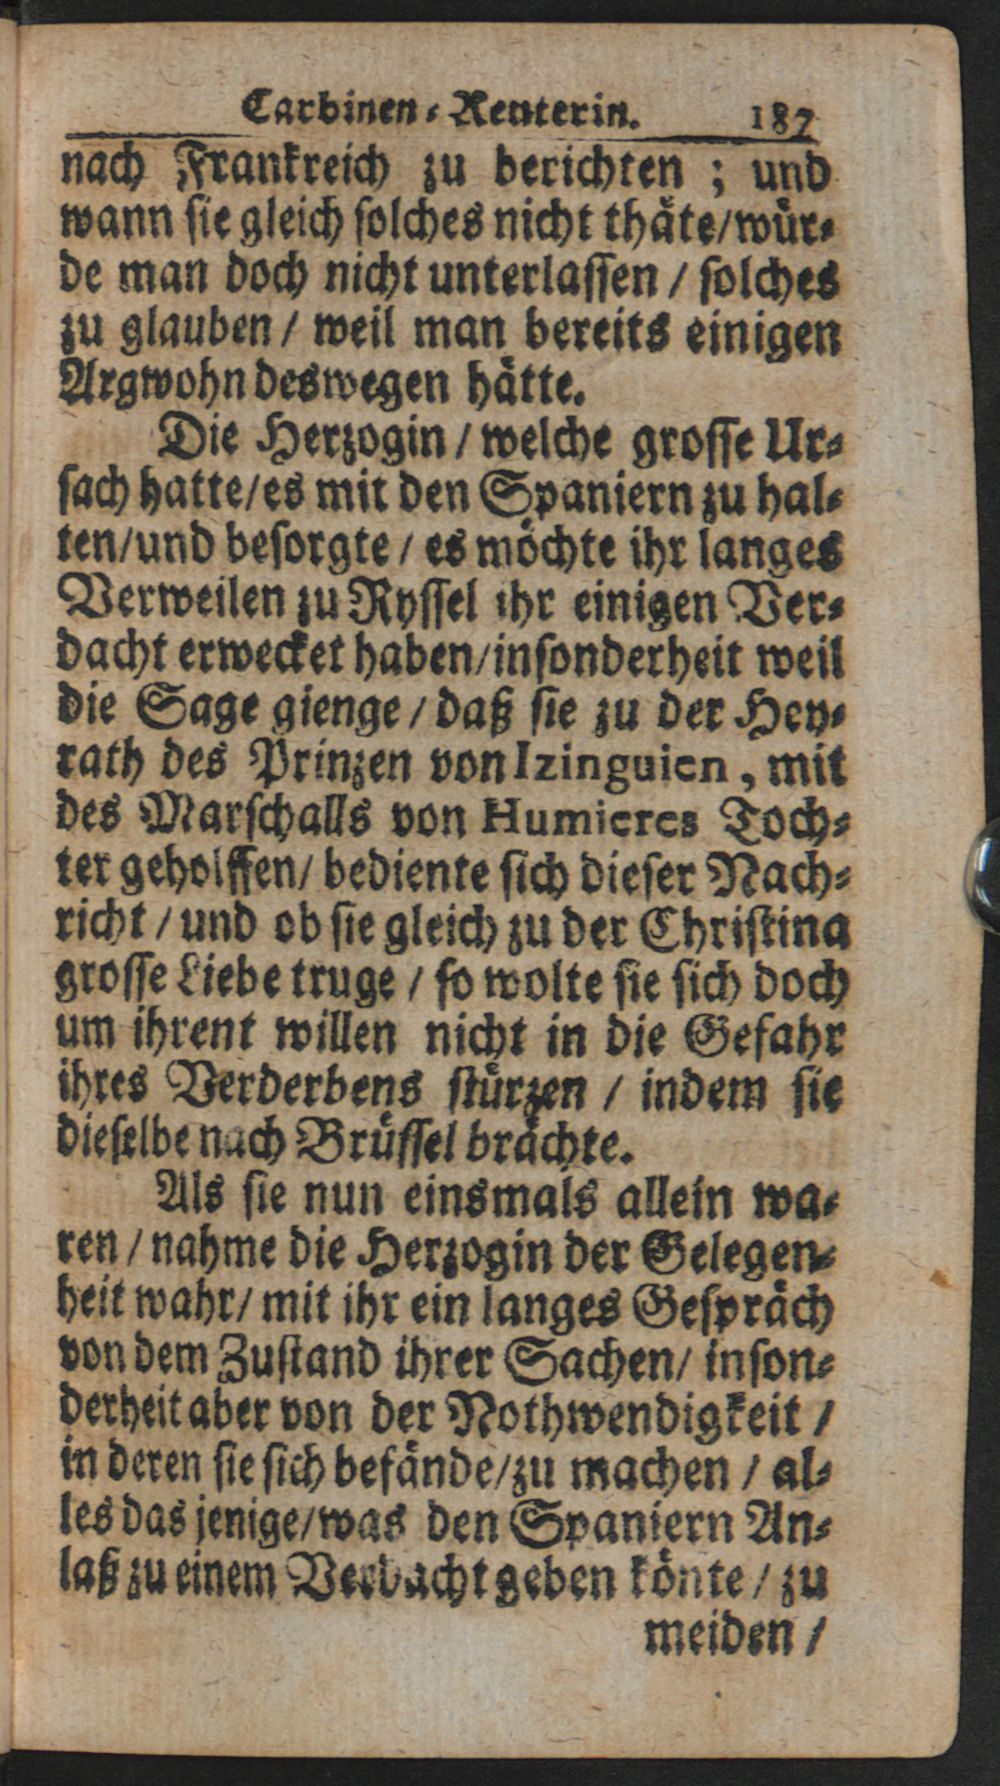 Carbinen-Reuterin. 187
nach Frankreich zu berichten ; und
wann sie gleich solches nicht thäte/wür-
de man doch nicht unterlassen / solches
zu glauben / weil man bereits einigen
Argwohn deswegen hätte.
Die Herzogin / welche grosse Ur-
sach hatte/es mit den Spaniern zu hal-
ten/und besorgte / es möchte ihr langes
Verweilen zu Ryssel ihr einigen Ver-
dacht erwecket haben/insonderheit weil
die Sage gienge / daß sie zu der Hey-
rath des Prinzen von Izinguien, mit
des Marschalls von Humieres Toch-
ter geholffen/ bediente sich dieser Nach-
richt / und ob sie gleich zu der Christina
grosse Liebe truge / so wolte sie sich doch
um ihrent willen nicht in die Gefahr
ihres Verderbens stürzen / indem sie
dieselbe nach Brüssel brächte.
Als sie nun einsmals allein wa-
ren / nahme die Herzogin der Gelegen-
heit wahr/ mit ihr ein langes Gespräch
von dem Zustand ihrer Sachen/ inson-
derheit aber von der Nothwendigkeit /
in deren sie sich befände/zu machen / al-
les das jenige/was den Spaniern An-
laß zu einem Verdacht geben könte / zu
meiden /